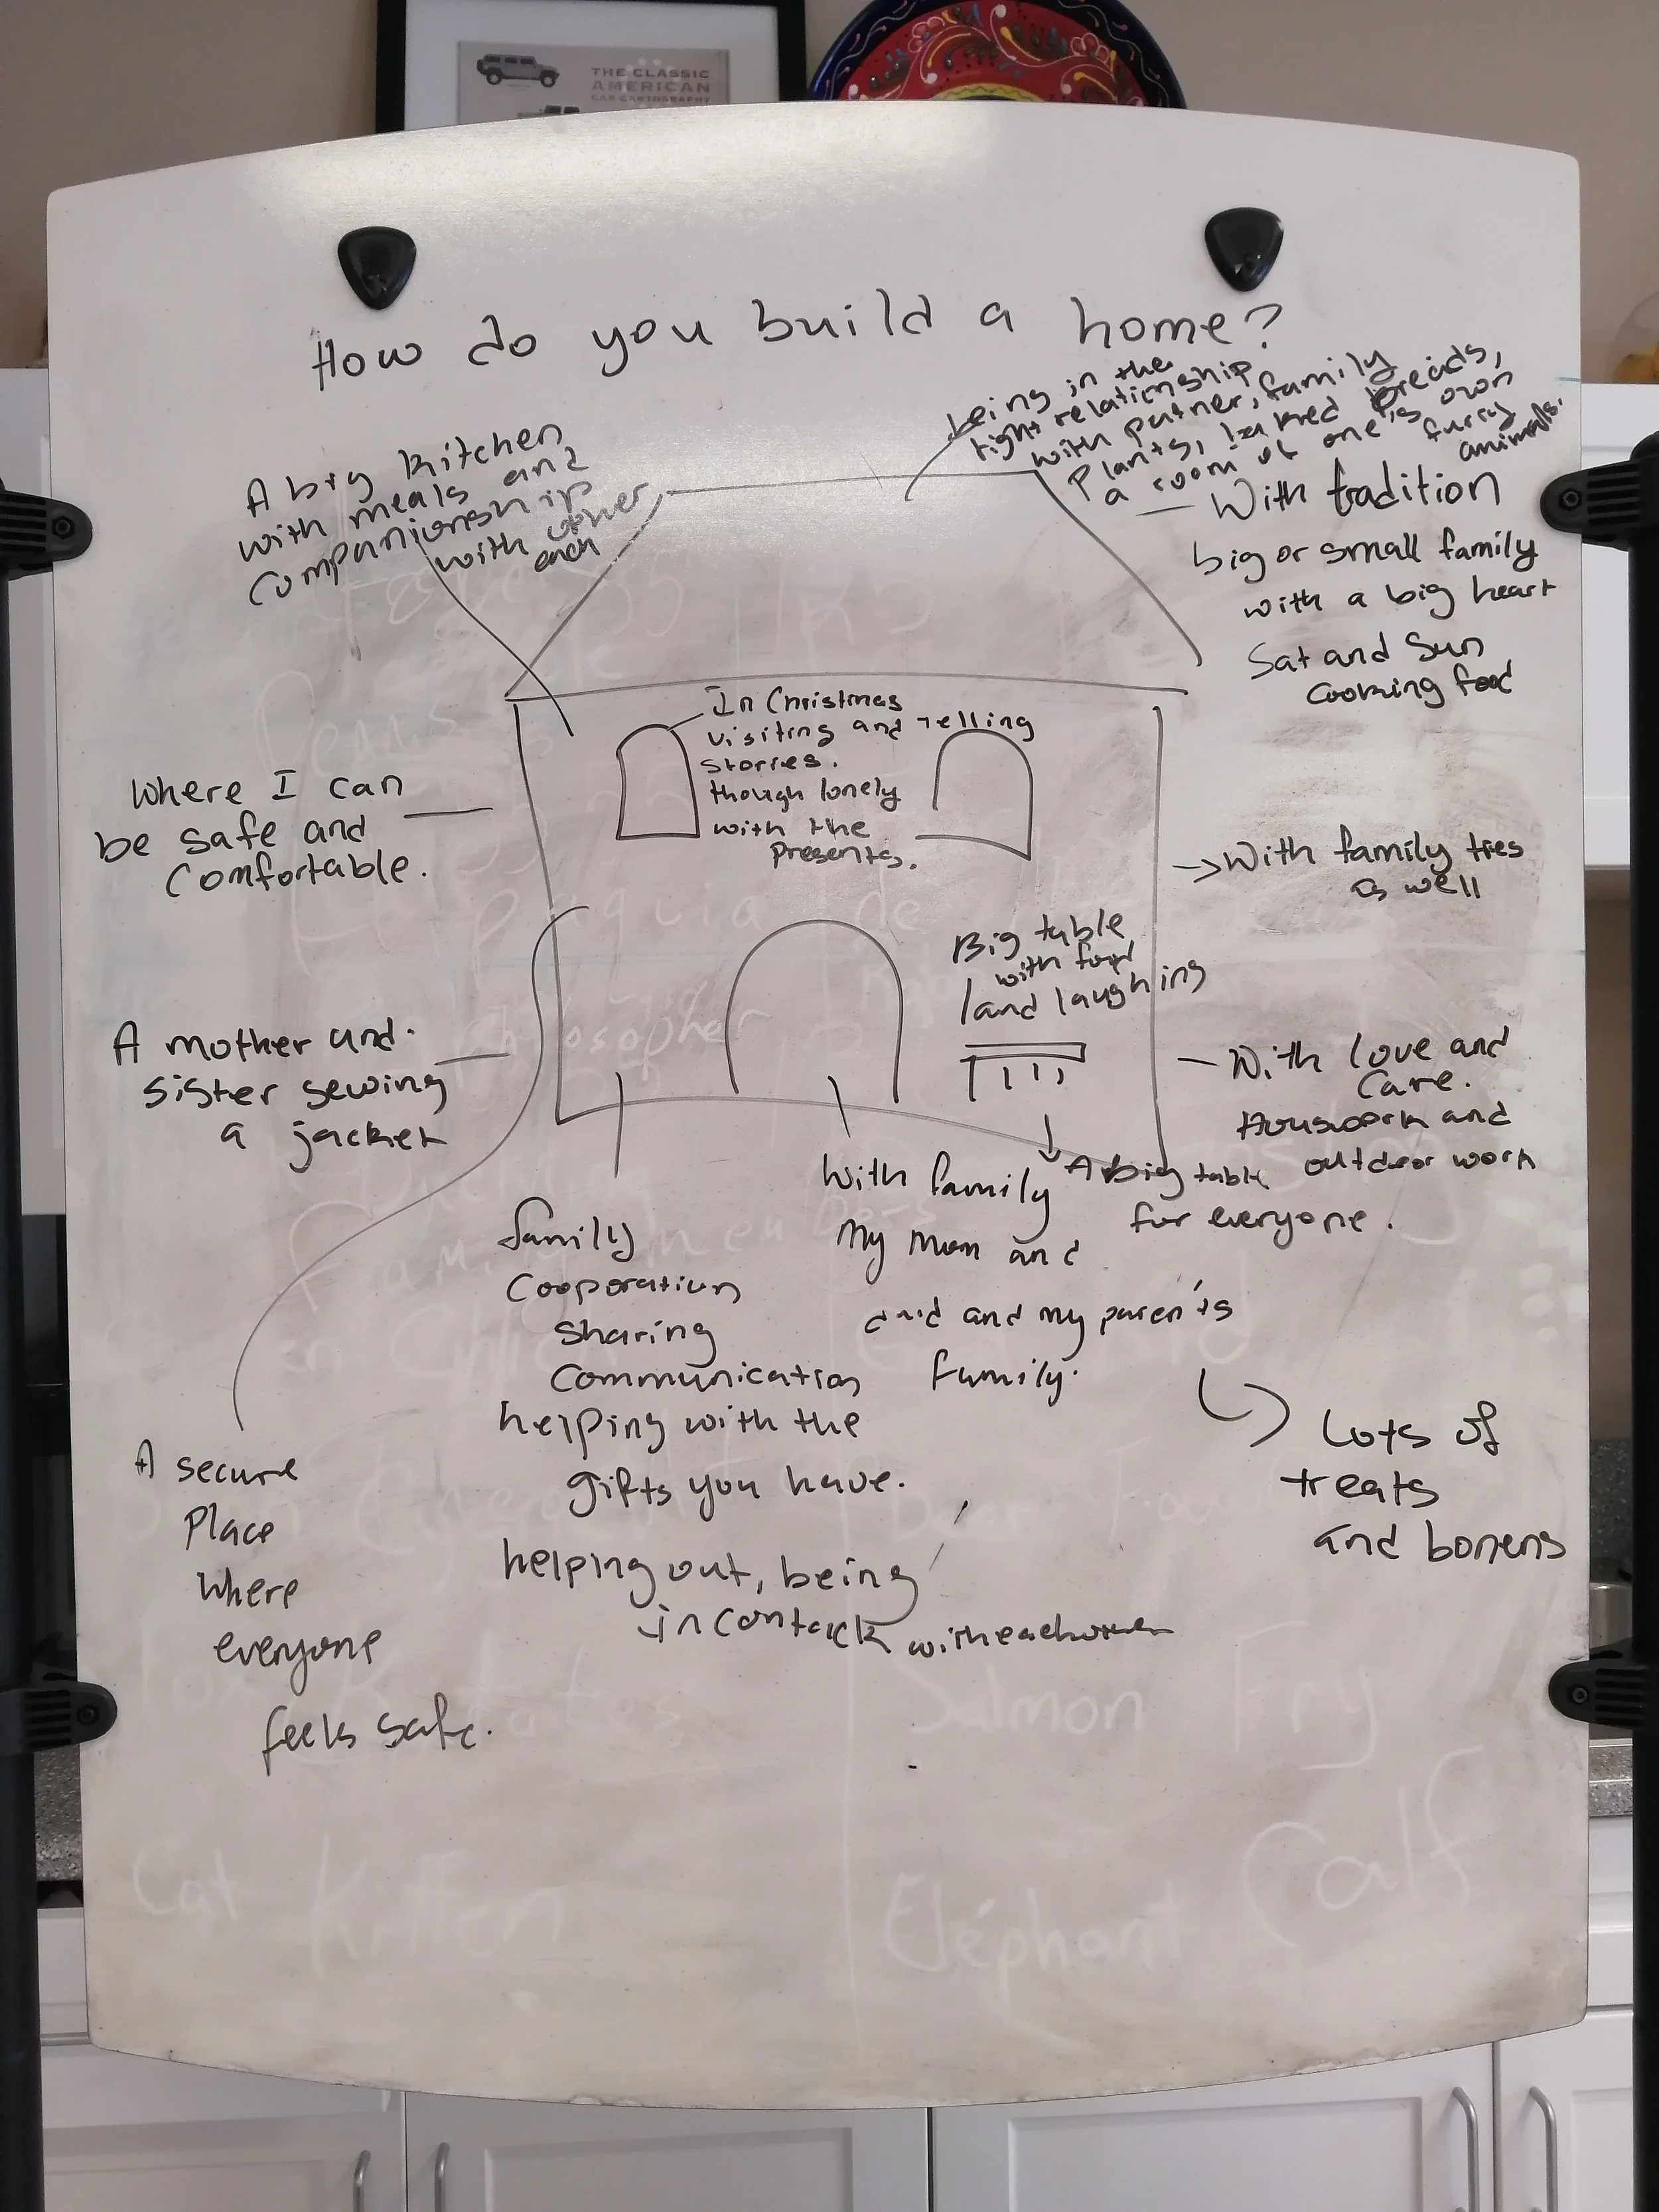 THE CLASSIC
AMERICAN
CAR CARTOGRAPHY
How do you build a home?
A big kitchen
with meals and
companionship
with other
each
being in the
right relationship
with partner, family
plants, baked breads,
a room of one's own
furry
animals.
With tradition
big or small family
with a big heart
Sat and Sun
cooking food
In Christmas
visiting and telling
stories.
though lonely
with the
presents.
Where I can
be safe and
comfortable.
With family ties
as well
Big table
with food
and laughing
A mother and
sister sewing
a jacket
With love and
care.
and
outdoor work
A big table
for everyone.
With family
My Mom and
dad and my parents
family.
family
cooperation
sharing
communication
helping with the
gifts you have.
helping out, being
in contack with each other
Lots of
treats
and
A secure
place
where
everyone
feels safe.
philosopher
Salmon Fry
Cat Kitten
Eléphant Calf